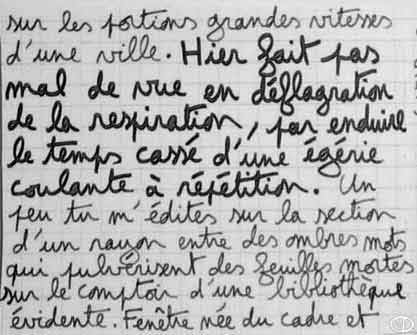 sur les portions grandes vitesses
d'une ville. Hier fait pas
mal de vue en déflagration
de la respiration, par enduire
le temps cassé d'une égérie
coulante à répétition. Un
peu tu m'édites sur la section
d'un rayon entre des ombres mots
qui pulvérisent des feuilles mortes
sur le comptoir d'une bibliothèque
évidente. Fenêtre née du cadre et